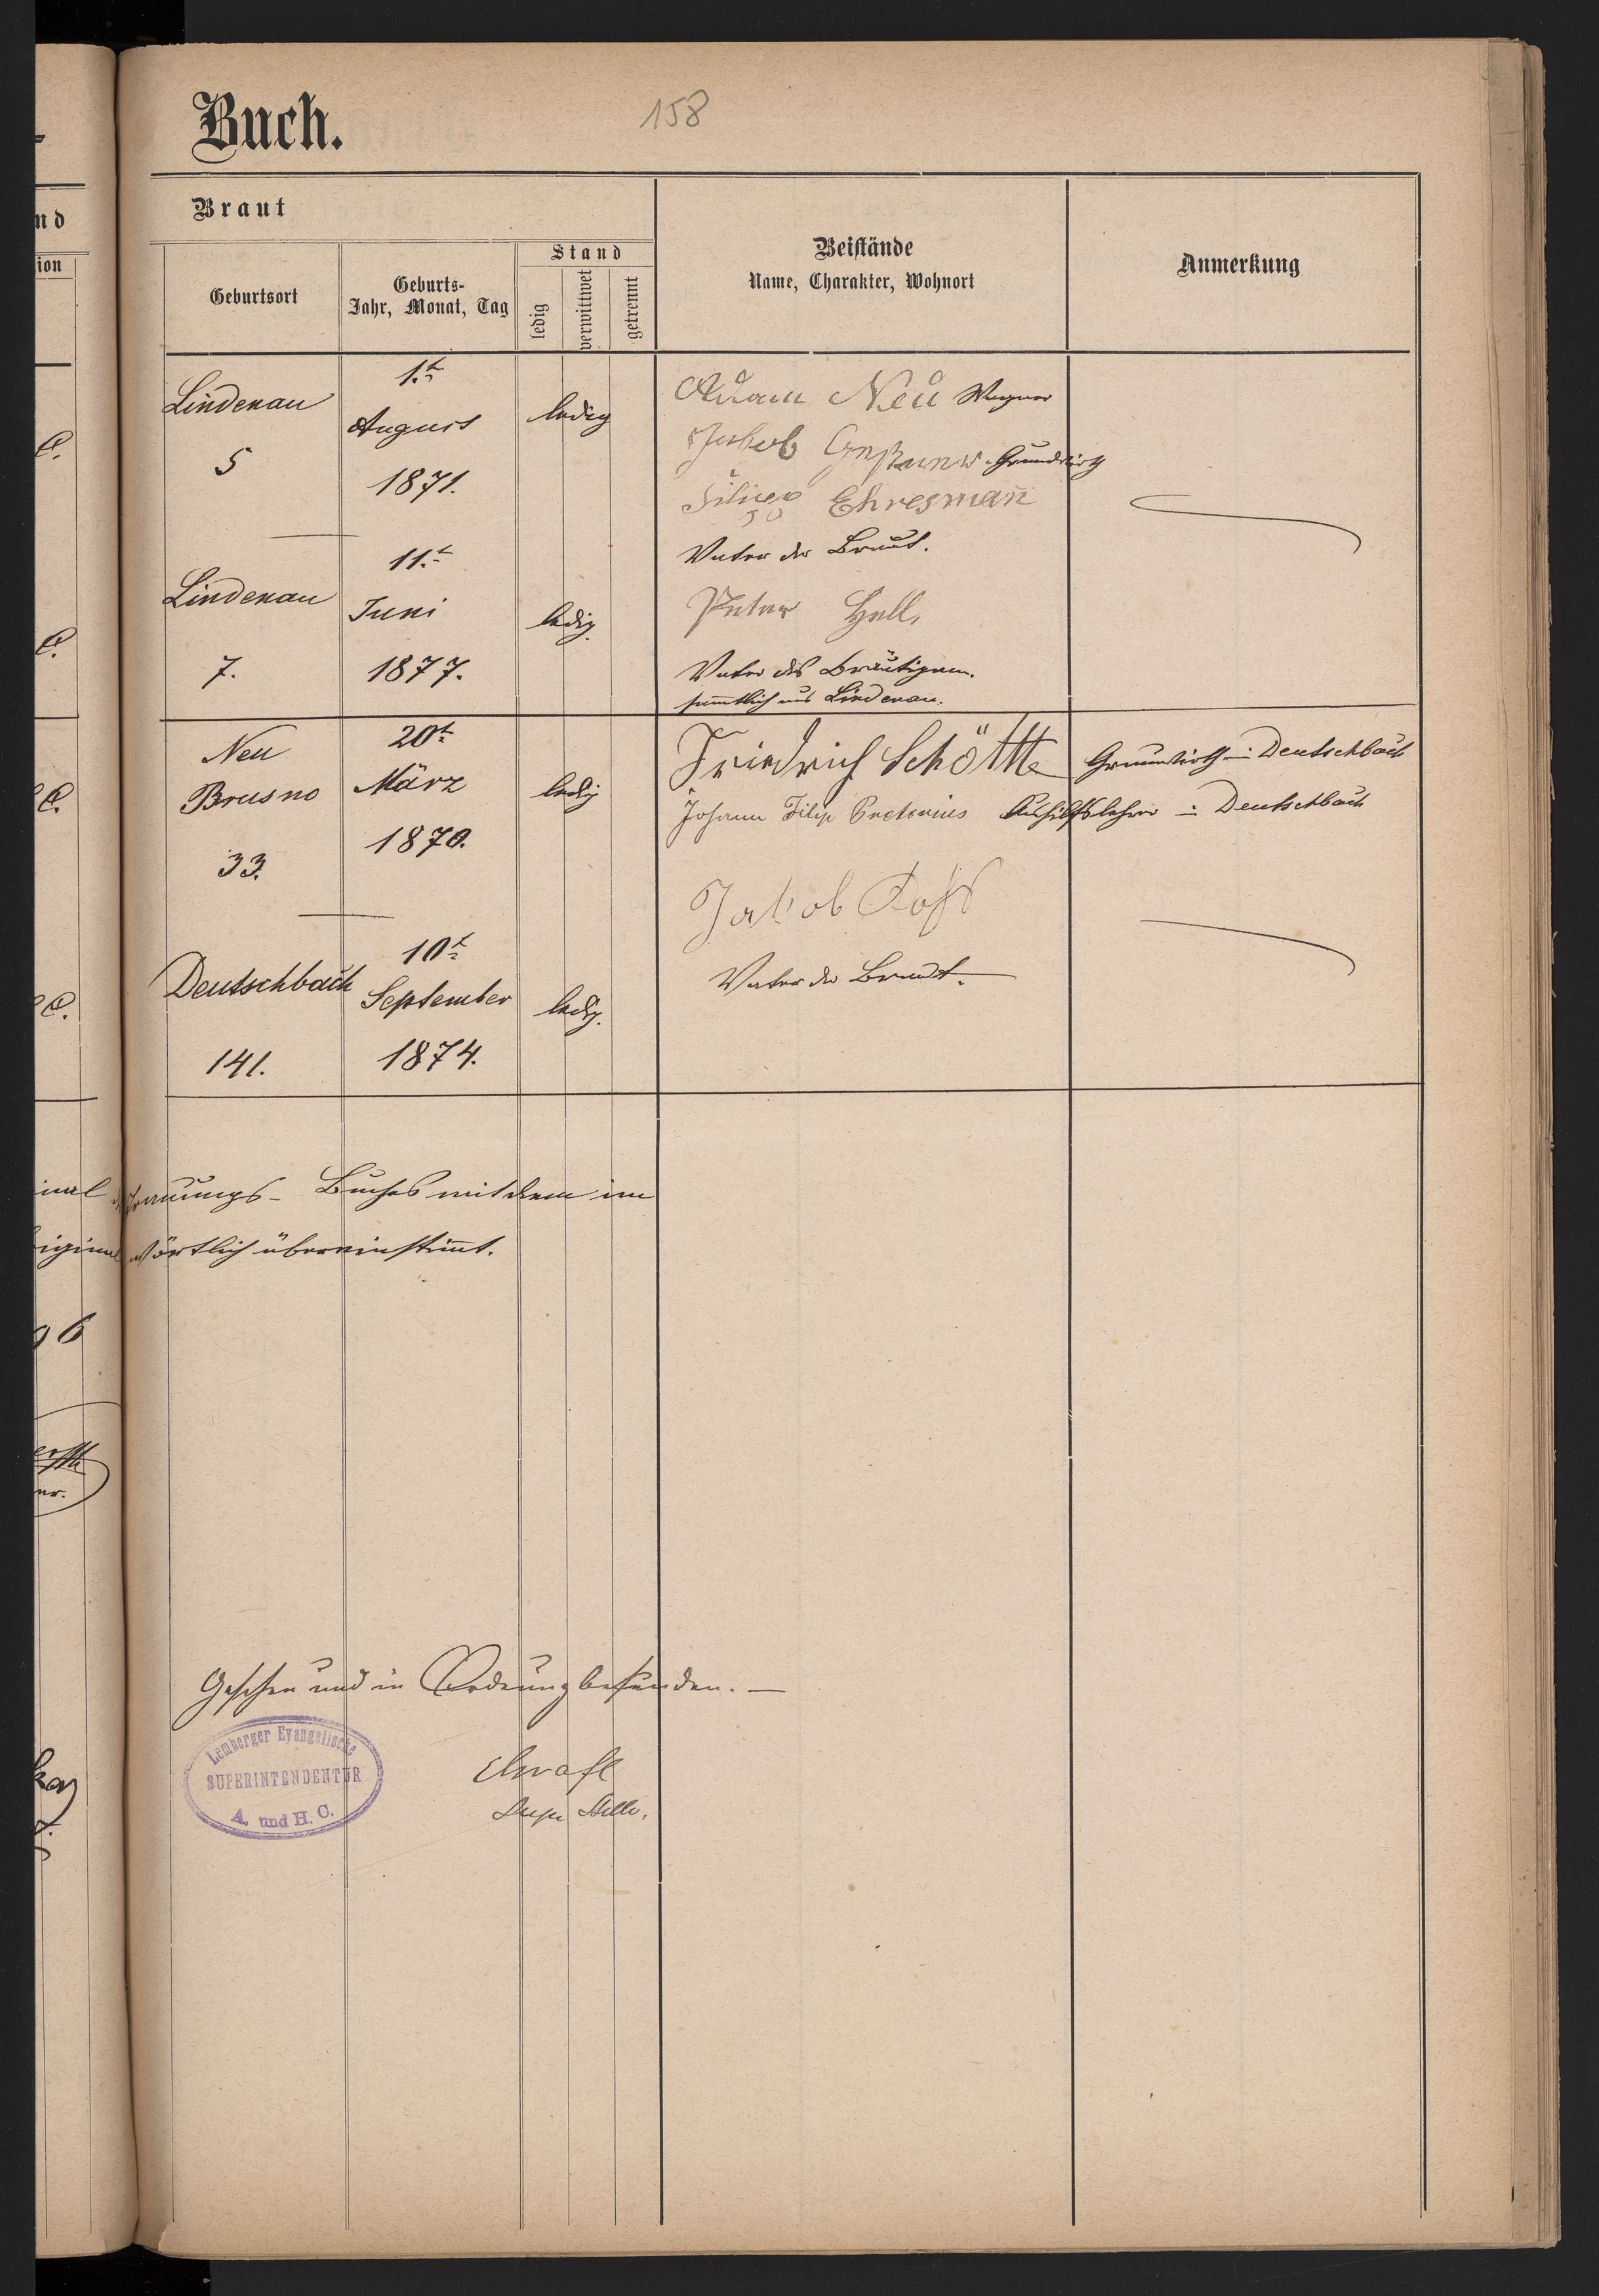 Buch.
158
Braut
Geburtsort
Geburts-
Jahr, Monat, Tag
Stand
ledig
verwittwet
getrennt
Beistände
Name, Charakter, Wohnort
Anmerkung
nd
ion
Lindenau
5
1.t
August
1871.
ledig
Adam Neu Wagner
Jakob Grundwirth
Filipp Ehresmann
Vater der Braut.
Lindenau
7.
11.t
Juni
1877.
ledig.
Peter Hell,
Vater des Bräutigam.
sämtlich aus Lindenau.
Neu
Brusno
33.
20t
März
1870.
ledig
Friedrich Schöttle Grundwirth in Deutschbach
Johann Filip Pretorius Aushilfslehrer in Deutschbach
Deutschbach
141.
10t
September
1874.
ledig.
Jakob
Vater der Braut.
Trauungs-Buches mit dem im
wörtlich übereinstimmt.
96
Gesehen und in Ordnung befunden. —
Lemberger Evangelische
SUPERINTENDENTUR
A. und H. C.